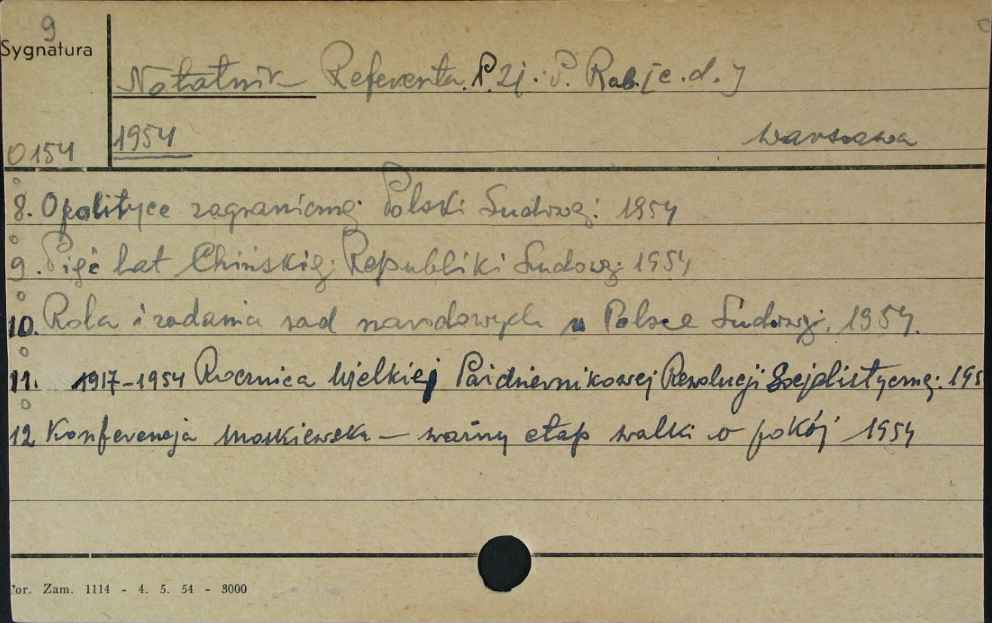 9
Sygnatura
Notatnik Referenta. P. Zj. P. Rob. [c. d.]
0154
1954 Warszawa
8. O polityce zagranicznej Polski Ludowej. 1954
9. Pięć lat Chińskiej Republiki Ludowej 1954
10. Rola i zadania rad narodowych w Polsce Ludowej. 1954.
11. 1917-1954 Rocznica Wielkiej Październikowej Rewolucji Socjalistycznej. 195
12 Konferencja moskiewska — ważny etap walki o pokój 1954
or. Zam. 1114 - 4. 5. 54 - 3000